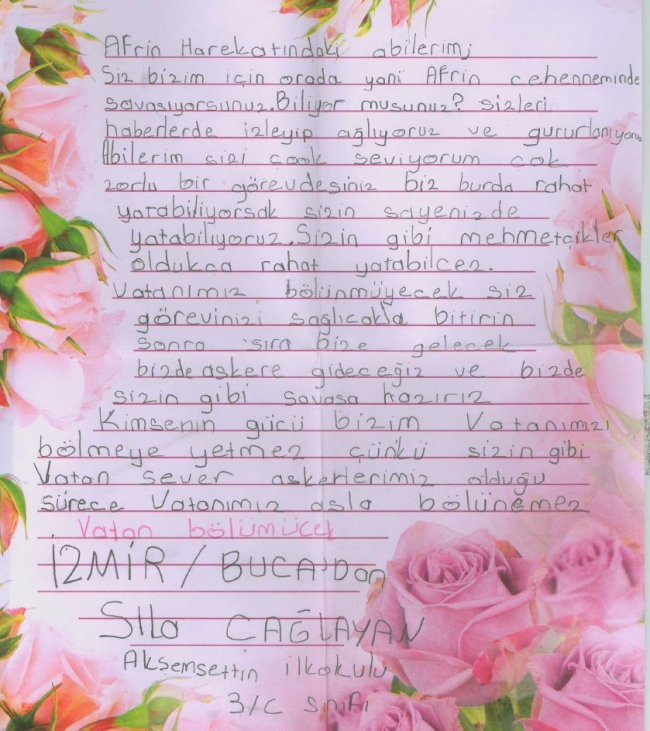 Afrin Harekatındaki abilerim;
Siz bizim için orada yani Afrin cehenneminde
savaşıyorsunuz.Biliyor musunuz? sizleri
haberlerde izleyip ağlıyoruz ve gururlanıyoruz
Abilerim sizi çook seviyorum çok
zorlu bir görevdesiniz biz burda rahat
yatabiliyorsak sizin sayenizde
yatabiliyoruz.Sizin gibi mehmetçikler
oldukca rahat yatabilcez.
Vatanımız bölünmüyecek siz
görevinizi sağlıcakla bitirin
sonra sıra bize gelecek
bizde askere gideceğiz ve bizde
sizin gibi savaşa hazırız
Kimsenin gücü bizim Vatanımızı
bölmeye yetmez çünkü sizin gibi
Vatan sever askerlerimiz olduğu
sürece Vatanımız asla bölünemez
Vatan bölümücek
İZMİR / BUCA'Dan
Sıla ÇAĞLAYAN
Akşemsettin ilkokulu
3/C sınıfı